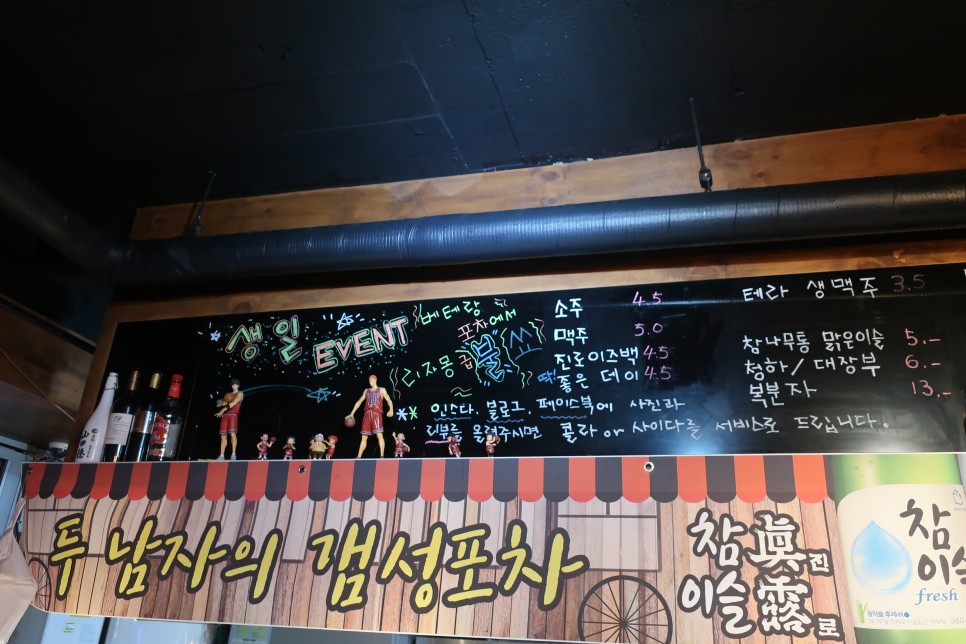 생일 EVENT
베테랑
포차에서
리자몽급 불쑈
소주 4.5
맥주 5.0
진로이즈백 4.5
딱! 좋은 데이 4.5
테라 생맥주 3.5
참나무통 맑은이슬 5.-
청하/대장부 6.-
복분자 13.-
인스타, 블로그, 페이스북에 사진과
리뷰를 올려주시면 콜라 or 사이다를 서비스로 드립니다!
두 남자의 갬성포차
참 眞 진
이슬 露 로
참
이슬
fresh
360